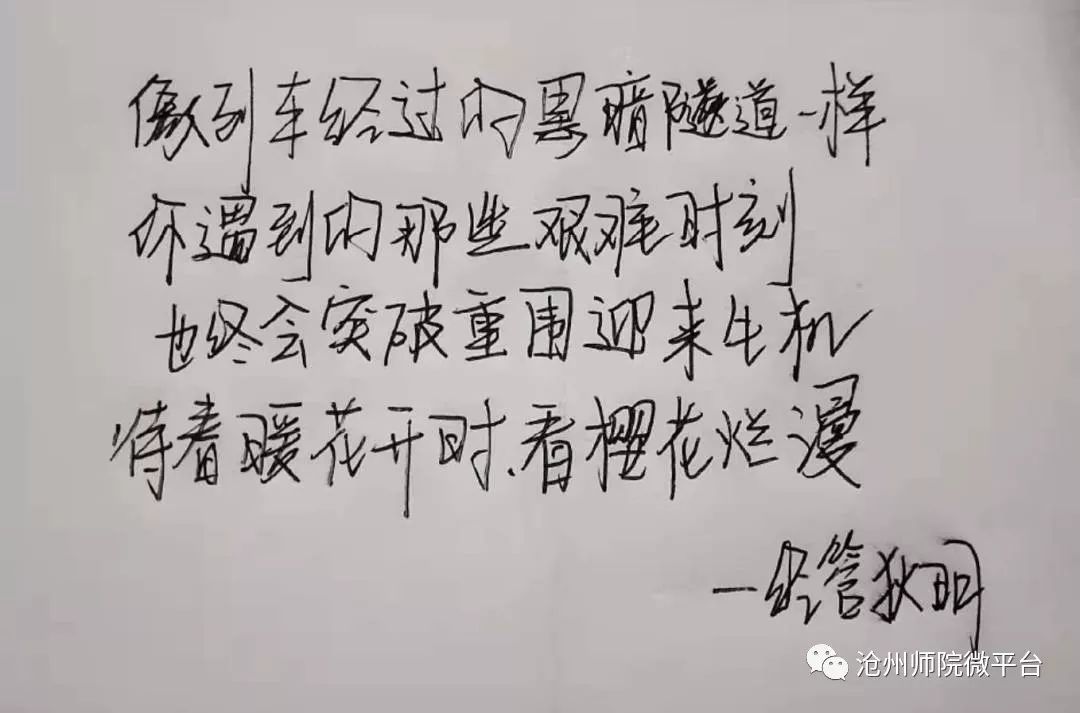 像列车经过的黑暗隧道一样
你遇到的那些艰难时刻
也终会突破重围迎来生机
待春暖花开时、看樱花烂漫
一经管狄明
沧州师院微平台